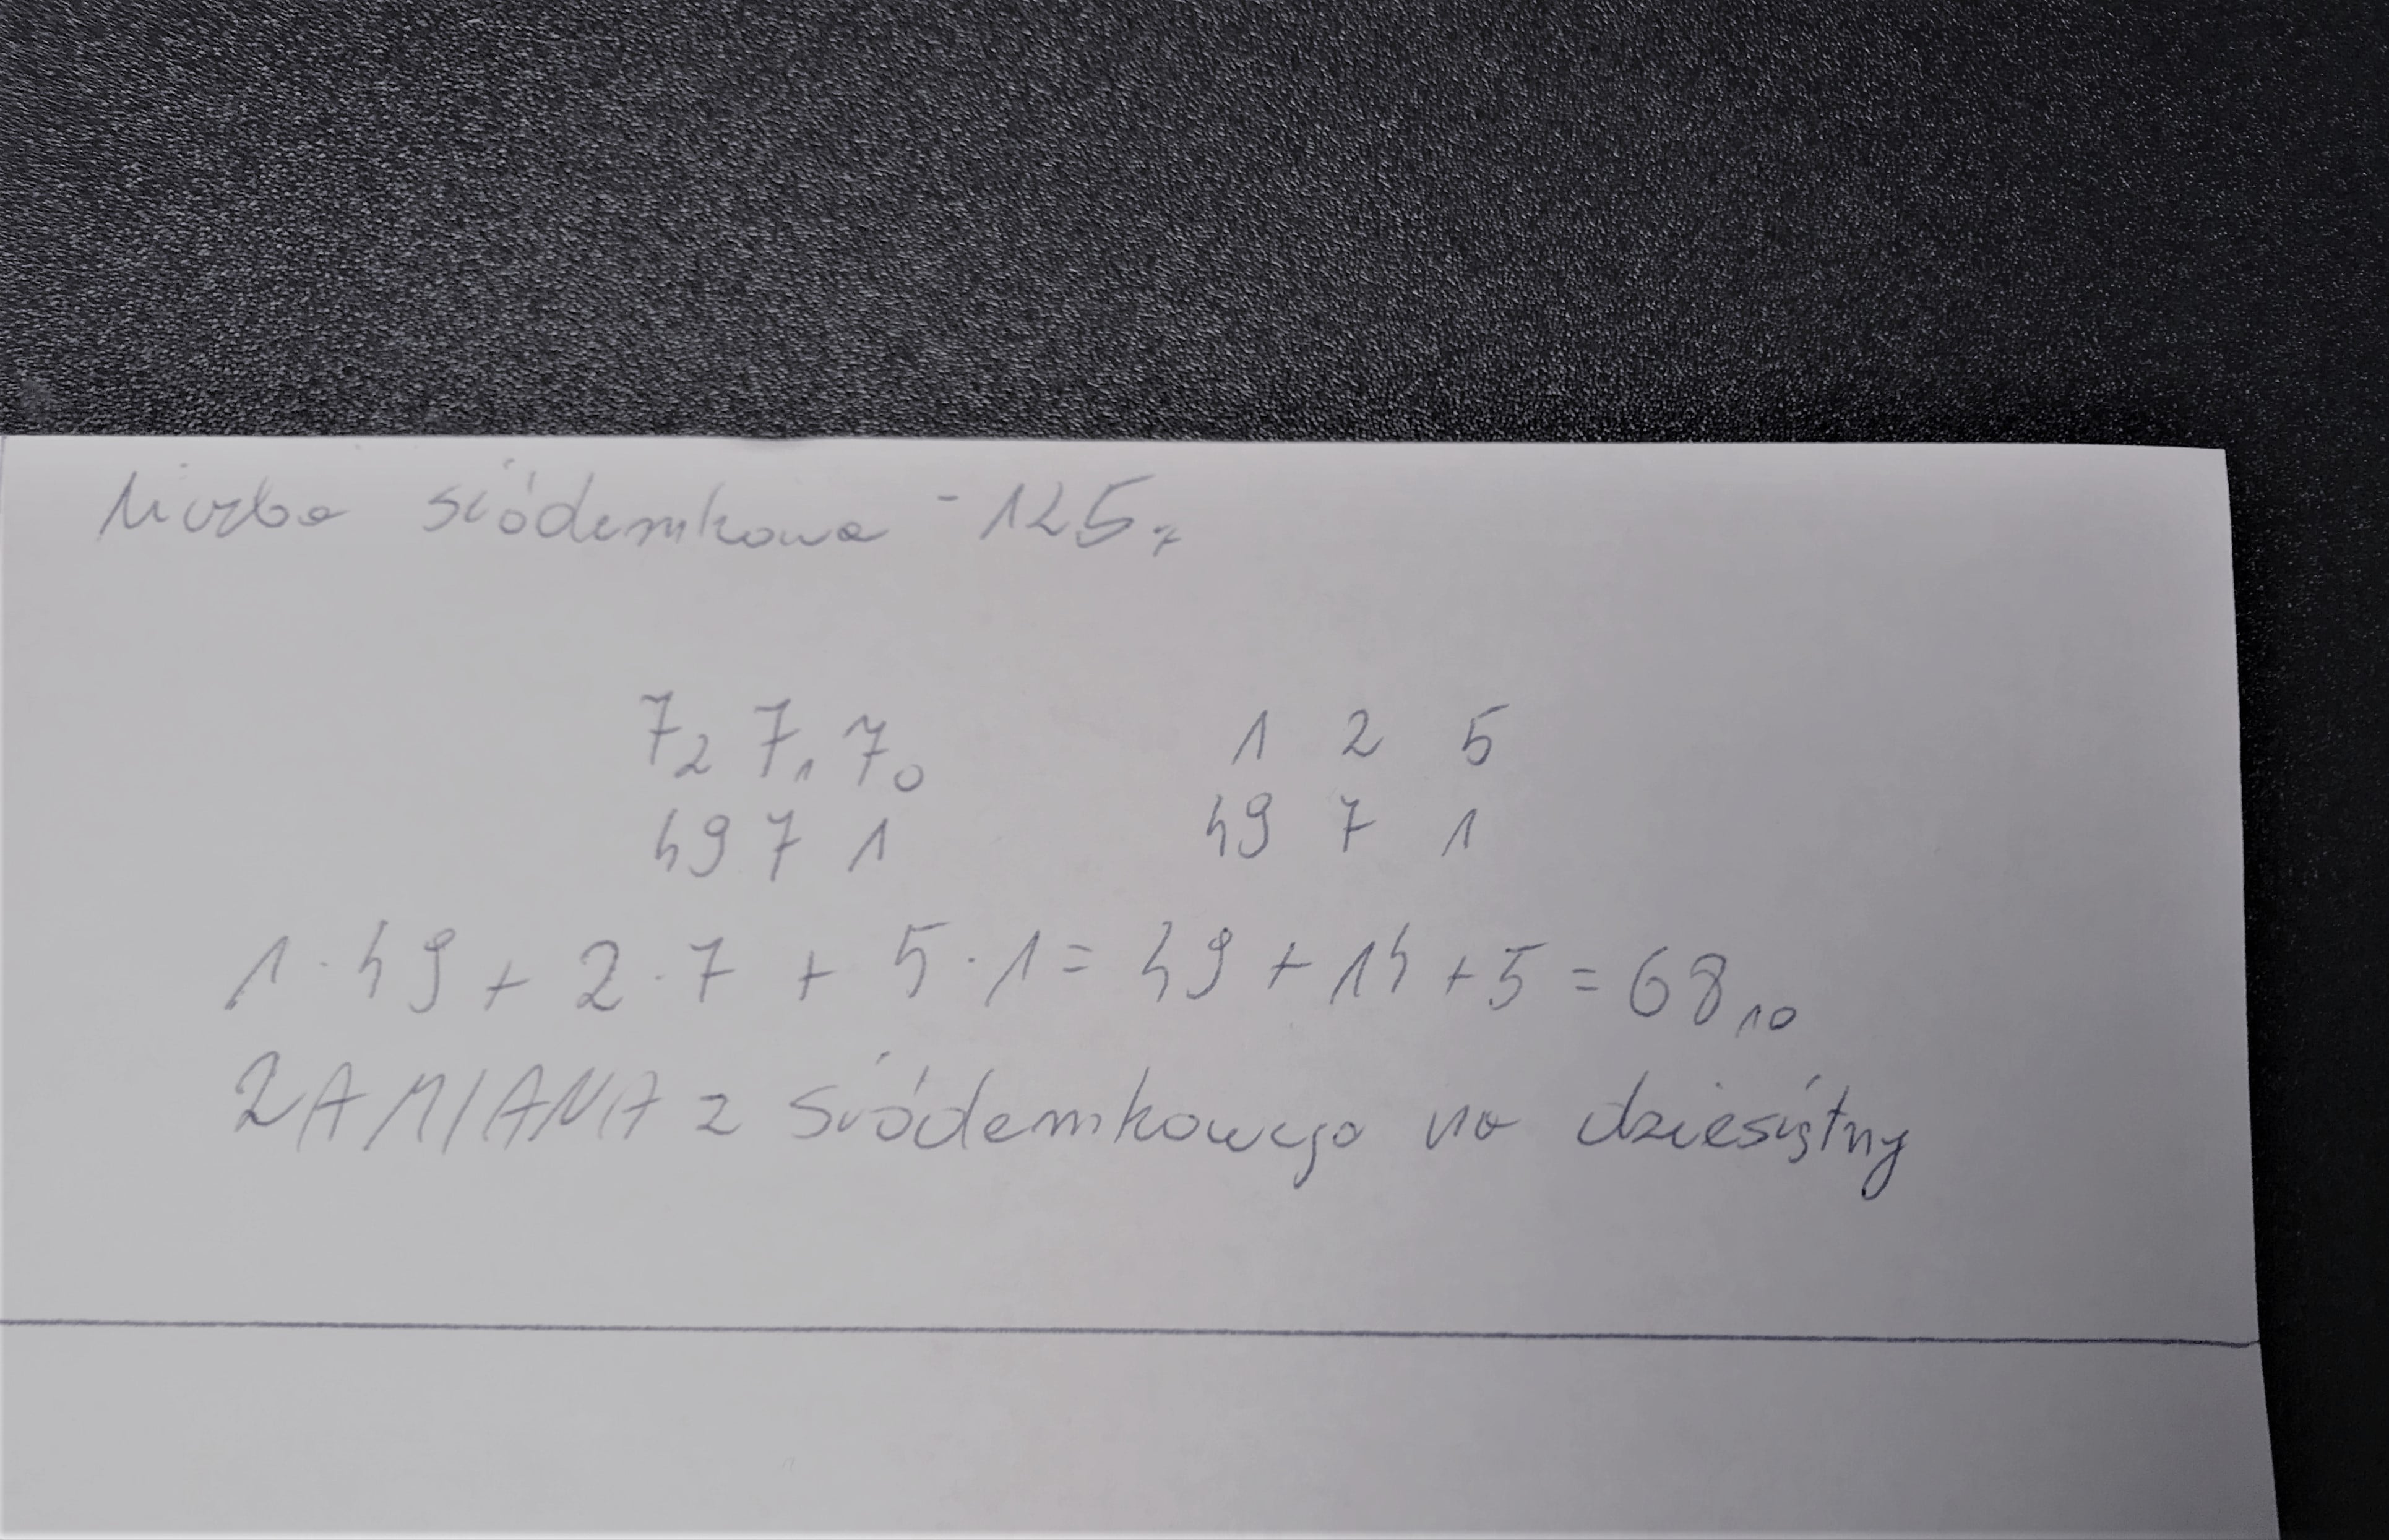 liczba siódemkowa - 125₇
7₂ 7₁ 7₀ 1 2 5
49 7 1 49 7 1
1·49 + 2·7 + 5·1 = 49 + 14 + 5 = 68₁₀
ZAMIANA z siódemkowego na dziesiętny